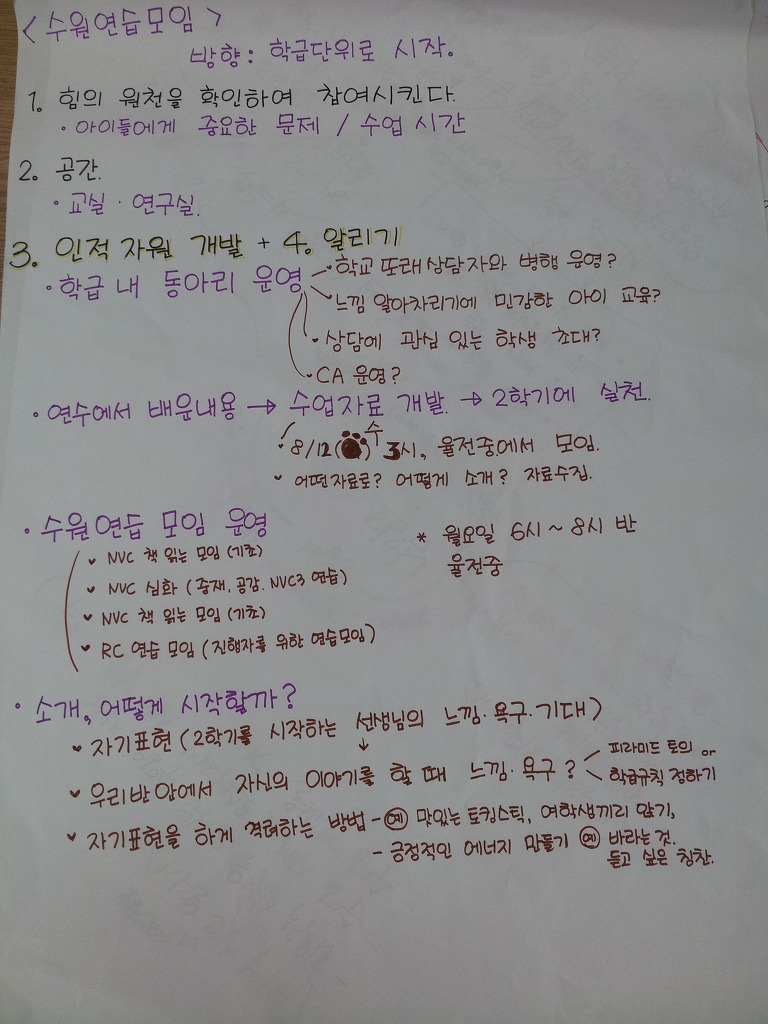 < 수원연습모임 >
방향: 학급단위로 시작.
1. 힘의 원천을 확인하여 참여시킨다.
· 아이들에게 중요한 문제 / 수업 시간
2. 공간.
· 교실 · 연구실.
3. 인적 자원 개발 + 4. 알리기
· 학급 내 동아리 운영
· 학교 또래상담자와 병행 운영?
느낌 알아차리기에 민감한 아이 교육?
상담에 관심 있는 학생 초대?
CA 운영?
· 연수에서 배운내용 → 수업자료 개발. → 2학기에 실천.
8/12( ) 수 3시, 율전중에서 모임.
어떤자료로? 어떻게 소개? 자료수집.
· 수원연습 모임 운영
* 월요일 6시 ~ 8시 반
율전중
NVC 책 읽는 모임 (기초)
NVC 심화 (중재, 공감, NVC3 연습)
NVC 책 읽는 모임 (기초)
RC 연습 모임 (진행자를 위한 연습모임)
· 소개, 어떻게 시작할까?
자기표현 (2학기를 시작하는 선생님의 느낌·욕구·기대)
↓
우리반안에서 자신의 이야기를 할 때 느낌·욕구?
피라미드 토의 or
학급규칙 정하기
자기표현을 하게 격려하는 방법 - 예 맛있는 토킹스틱, 여학생끼리 앉기,
- 긍정적인 에너지 만들기 예 바라는 것.
듣고 싶은 칭찬.